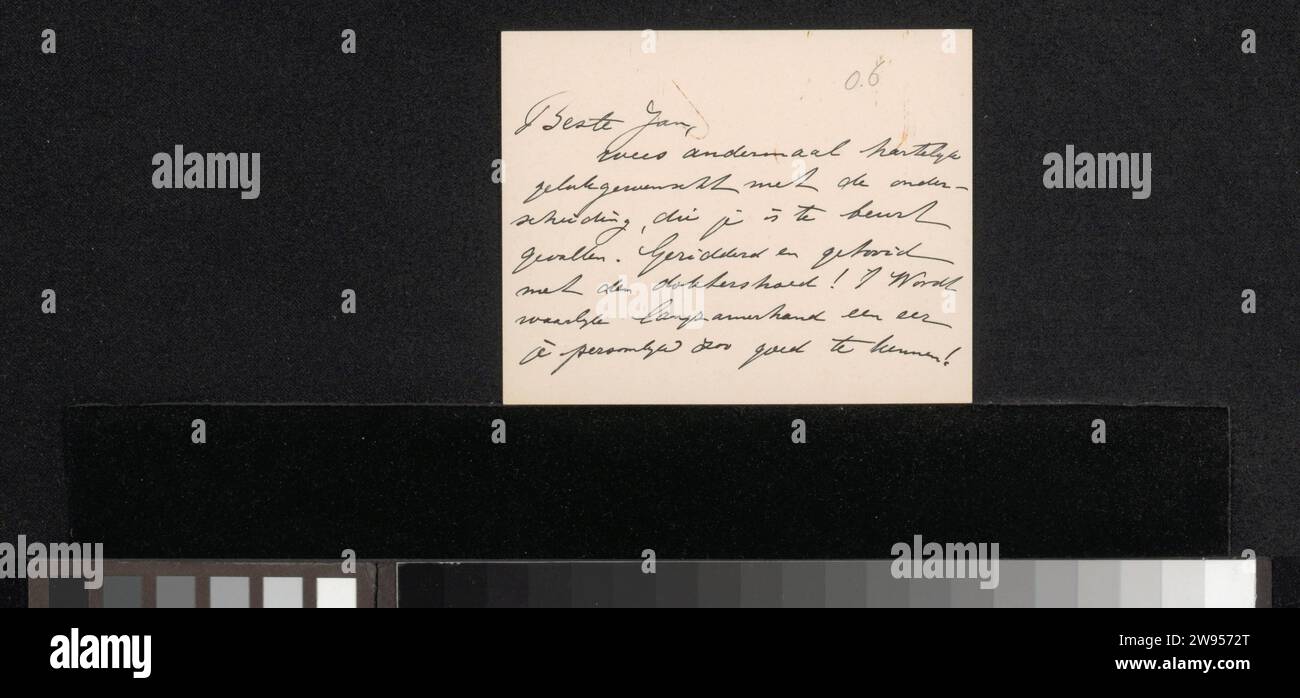 0.6
Beste Jan,
wees andermaal hartelijk
gelukgewenscht met de onder-
scheiding, die je is te beurt
gevallen. Geridderd en getooid
met den doktershoed! 't Wordt
waarlijk langzamerhand een eer
je persoonlijk zoo goed te kennen!
alamy
alamy
alamy
Image ID: 2W9572T
www.alamy.com